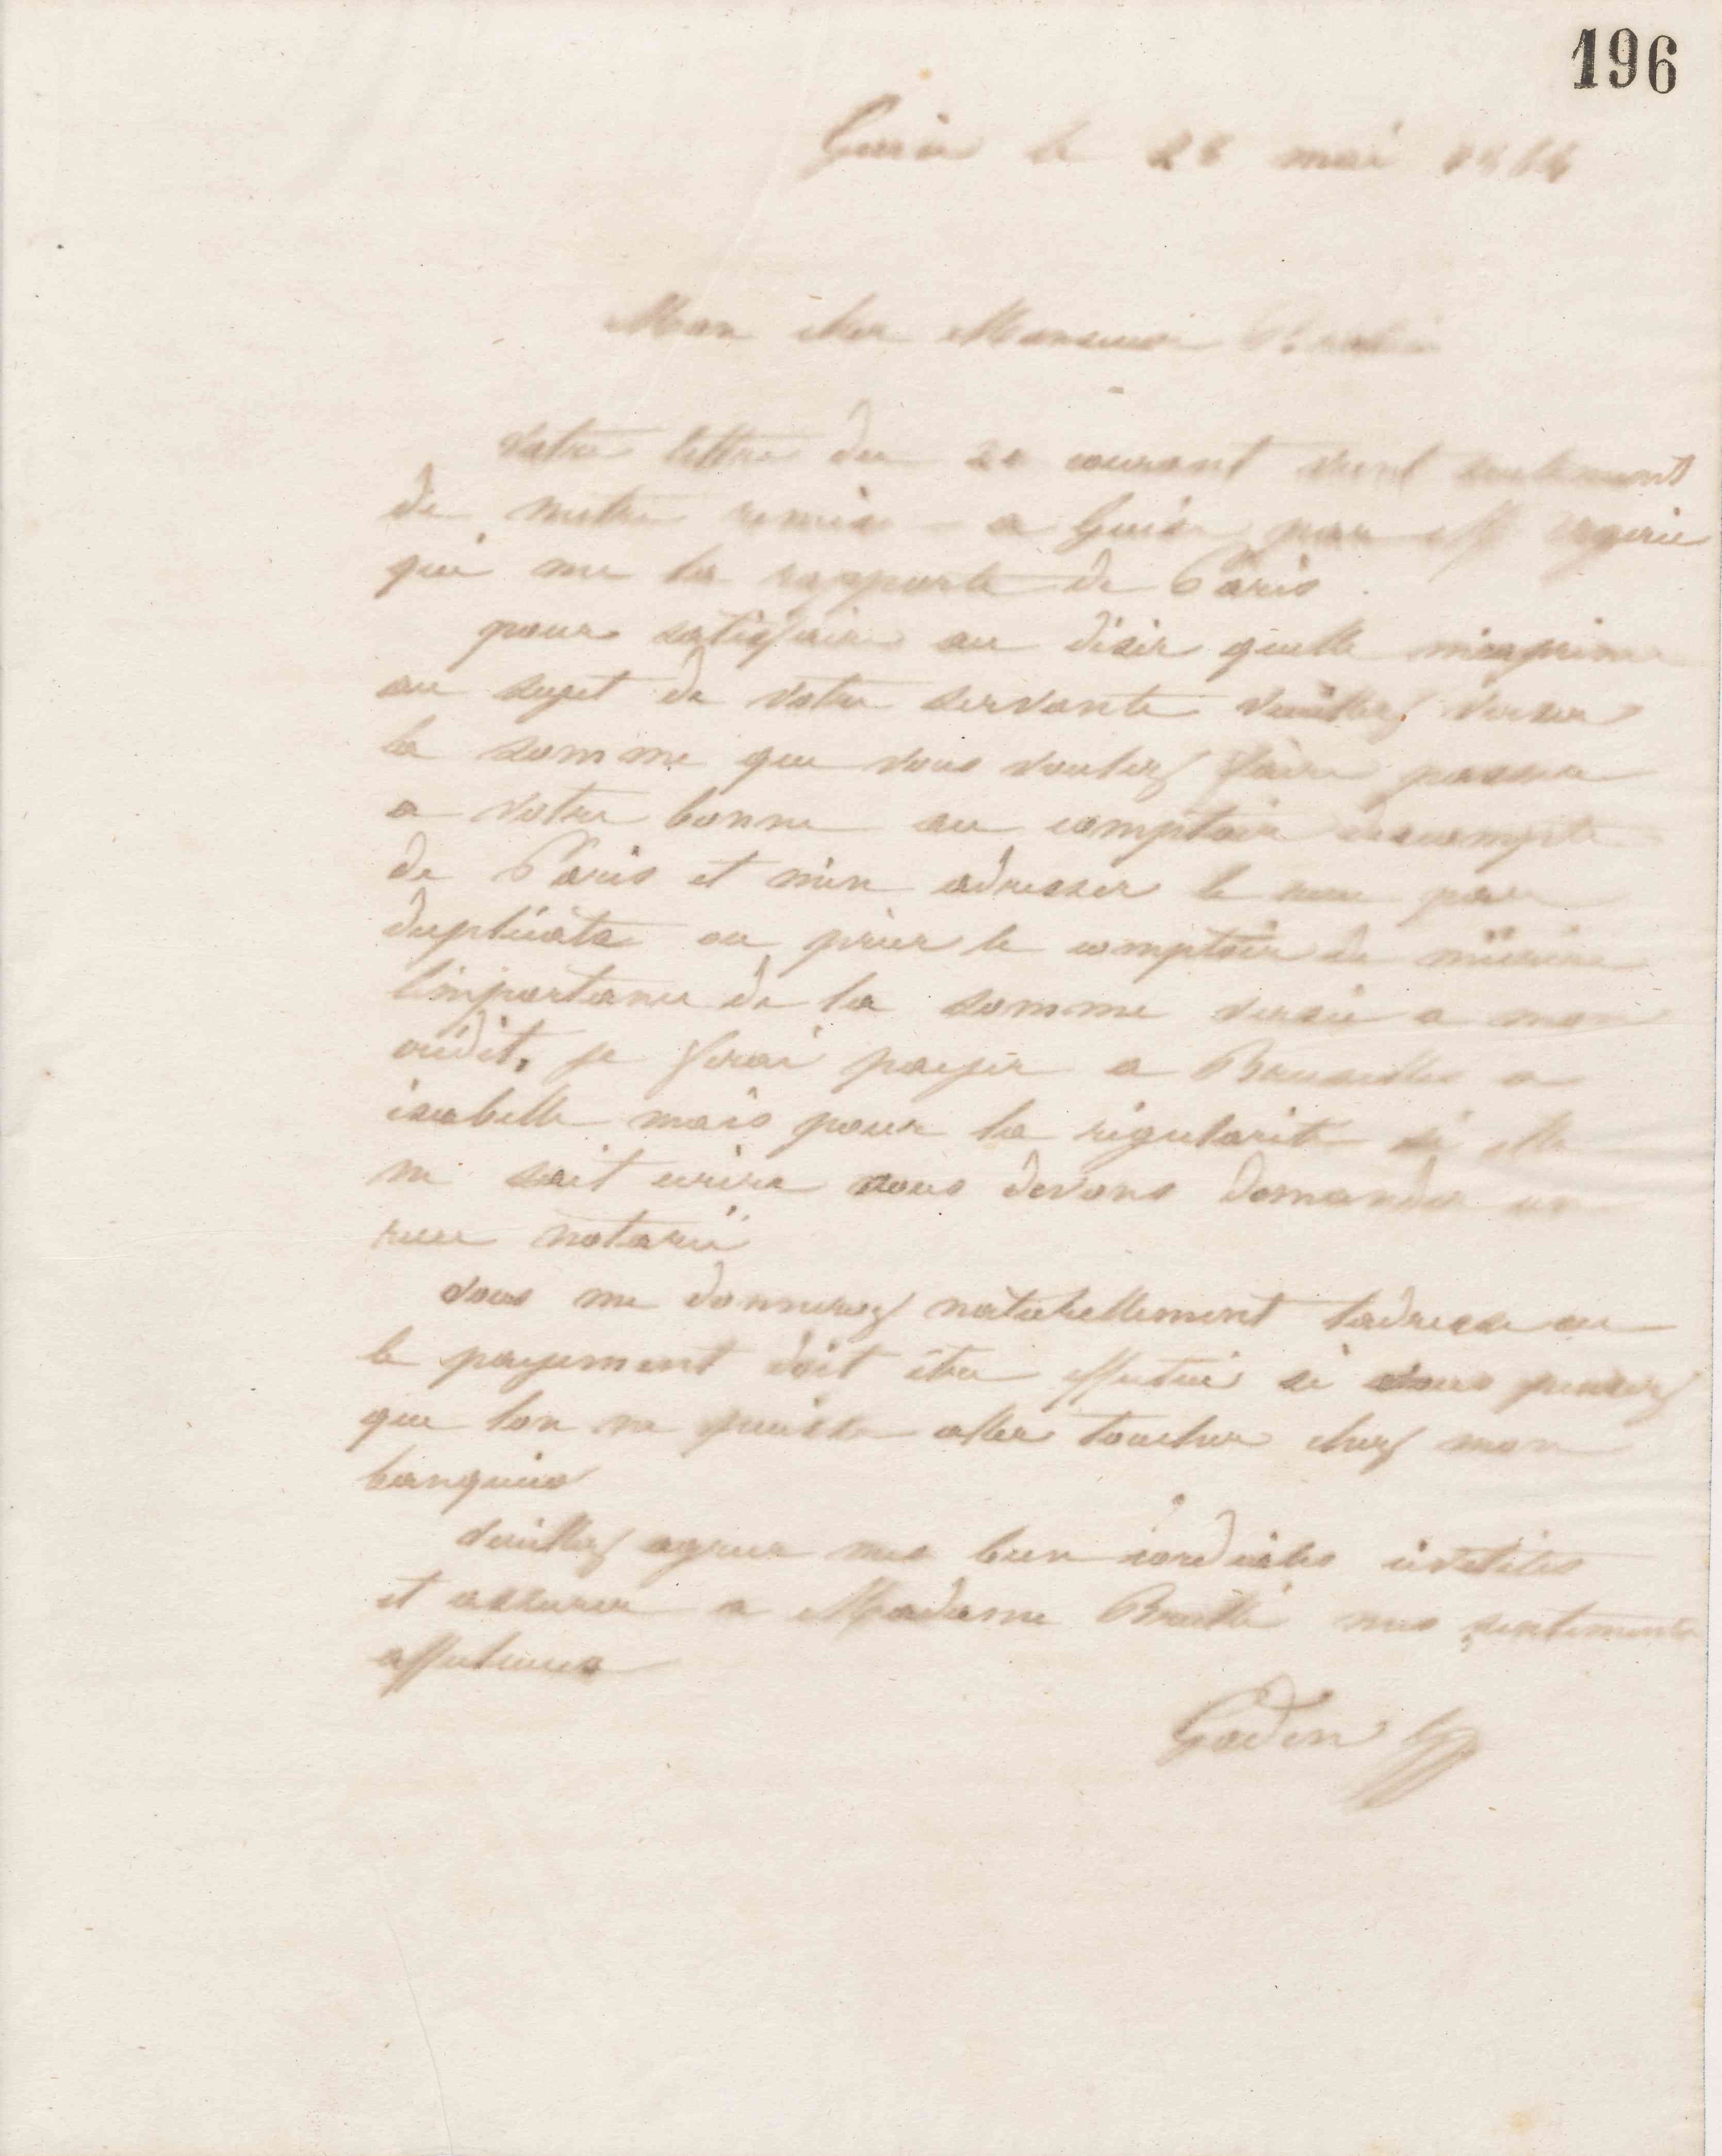 196
Guise le 28 mai
Mon cher Monsieur
Votre lettre du 20 courant vient seulement
de metre remise a Guise par M
qui me la rapporte de Paris.
pour satisfaire au désir quelle mexprime
au sujet de votre servante veuillez verser
la somme que vous voulez faire passer
a votre bonne au comptoir descompte
de Paris et men adresser le recu par
duplicata ou prier le comptoir de mécrire
limportance de la somme versée a mon
crédit. je ferai payer a Bruxelles a
isabelle mais pour la régularité si elle
ne sait ecrire nous devons demander un
recu notarié
vous me donnerez naturellement ladresse ou
le payement doit être effectué si vous pensez
que lon ne puisse aller toucher chez mon
banquier
Veuillez agreer mes bien cordiales civilités
et assurer a Madame mes sentiments
affectueux
Godin